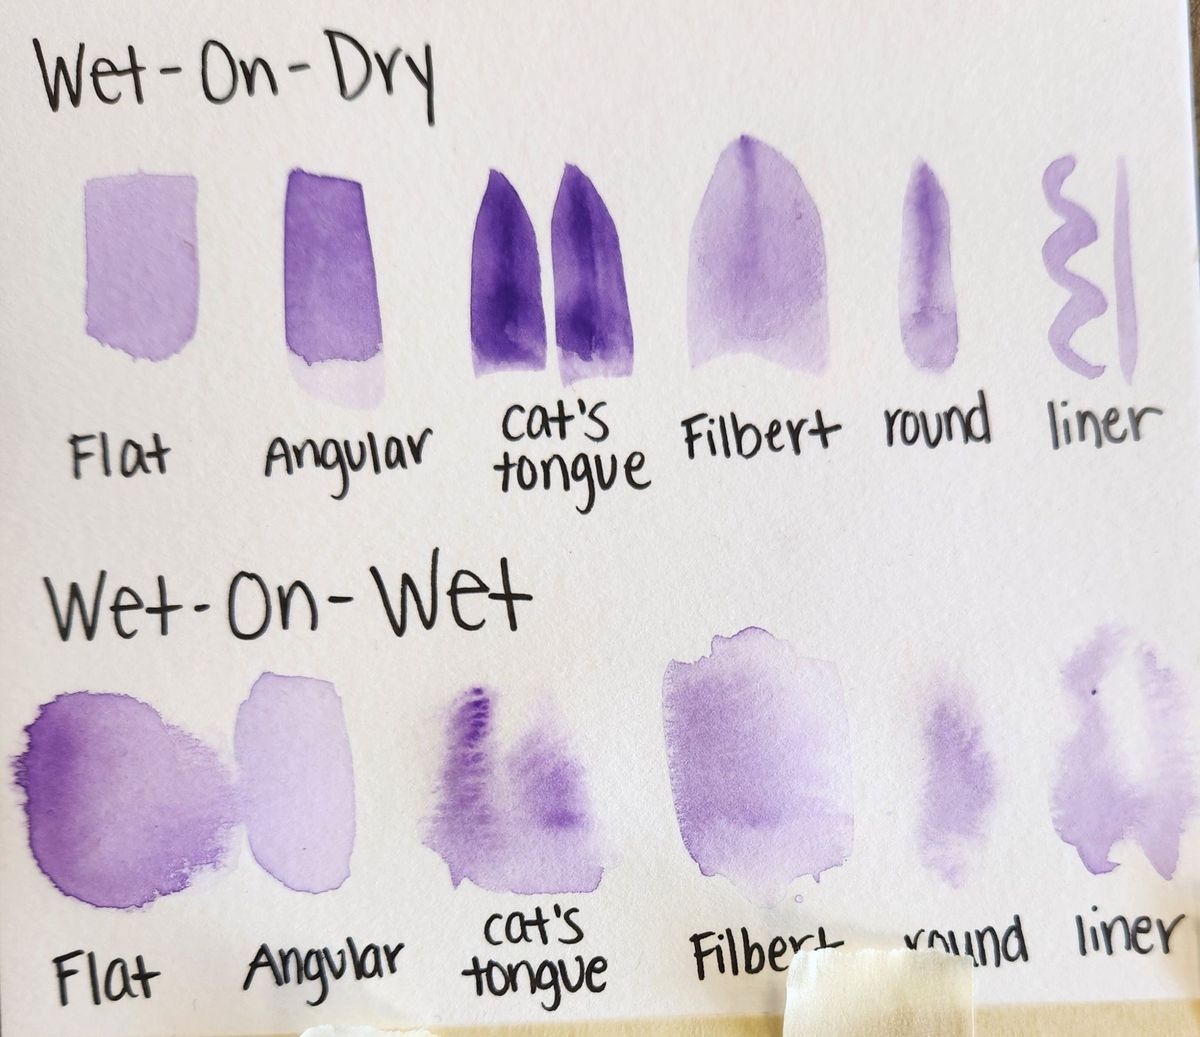 Wet-On-Dry
Flat Angular cat's tongue Filbert round liner
Wet-On-Wet
Flat Angular cat's tongue Filbert round liner